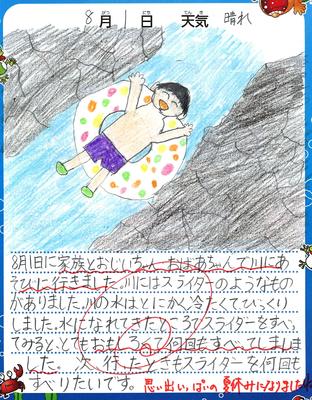 8月1日 天気 晴れ
8月1日に家族とおじいちゃん、おばあちゃんで川にあ
そびに行きました。川にはスライダーのようなもの
がありました。川の水はとにかく冷たくてびっくり
しました。水になれてきたところでスライダーをすべっ
てみると、とてもおもしろくて何回もすべってしまいま
した。次、行ったときもスライダーを何回も
すべりたいです。思い出いっぱいの夏休みになりましたね